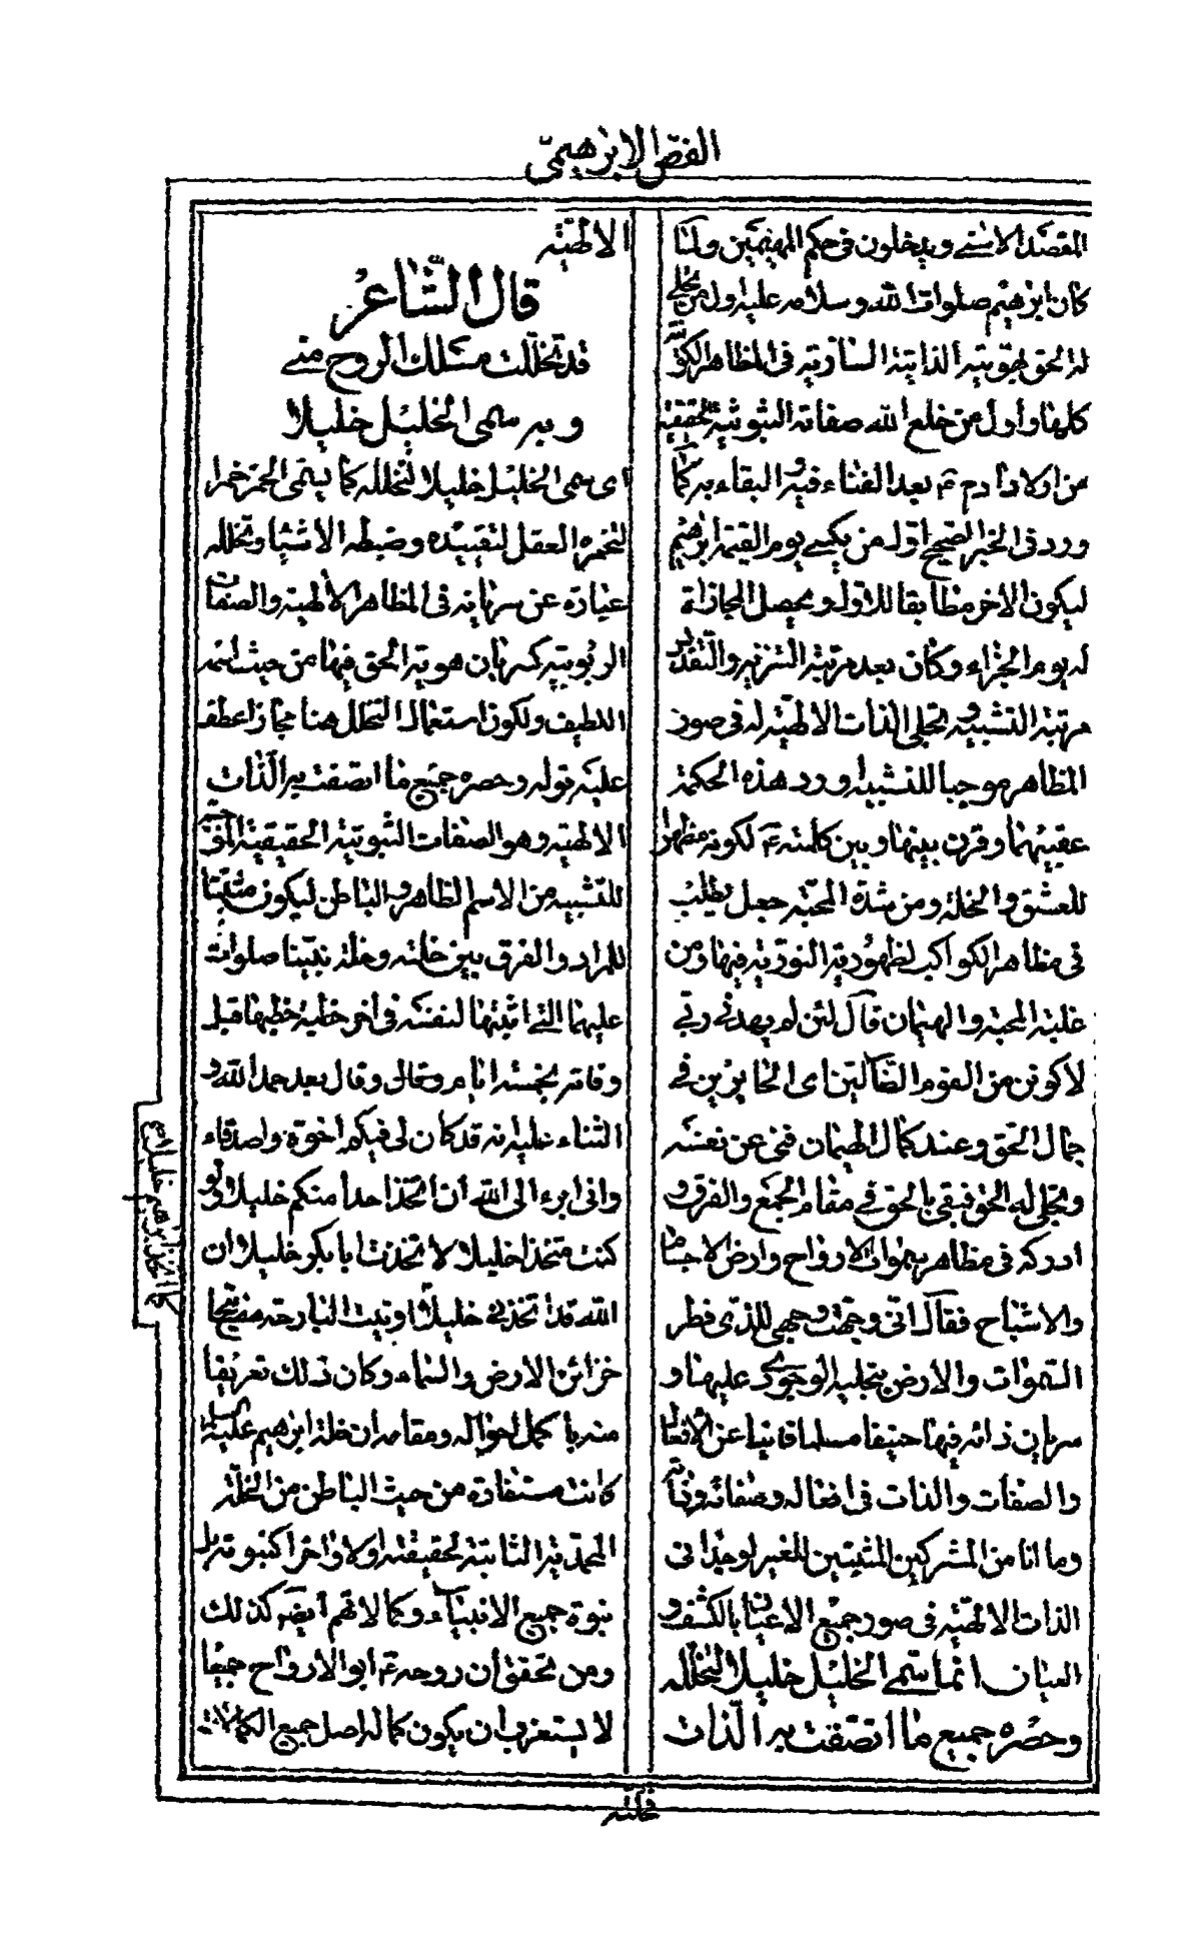 الفصّ الابرهيمىّ
المقصد الاسنى ويدخلون فى حكم المهيمين ولما
كان ابرهيم صلوات الله وسلامه عليه اول من تجلى
له الحق بهويته الذاتية السارية فى المظاهر الكونية
كلها واول من خلع الله صفاته الثبوتية الحقيقية
من اولاد ادم ع بعد الفناء فيه والبقاء به كما
ورد فى الخبر الصحيح اول من يكسى يوم القيمة ابرهيم
ليكون الاخر مطابقا للاول ويحصل المجازاة
له يوم الجزاء وكان بعد مرتبة التنزيه والتقديس
مرتبة التشبيه وتجلى الذات الالهية له فى صور
المظاهر موجبا للتشبيه اورد هذه الحكمة
عقيبهما وقرن بينها وبين كلمته ع لكونه مظهرا
للعشق والخلة ومن شدة المحبة جعل يطلب
فى مظاهر الكواكب لظهور فيه النورية فيها ومن
غلبة المحبة والهيمان قال لئن لم يهدنى ربى
لاكونن من القوم الضالين اى الحايرين فى
جمال الحق وعند كمال الهيمان فنى عن نفسه
وتجلى له الحق فبقى بالحق فى مقام الجمع والفرق و
ادركه فى مظاهر سموات الارواح وارض الاجسام
والاشباح فقال انى وجهت وجهى للذى فطر
السموات والارض بتجليه الوجودى عليها و
سريان ذاته فيها حنيفا مسلما فانيا عن الافعال
والصفات والذات فى افعاله وصفاته وذاته
وما انا من المشركين المثبتين للغير لوجدانى
الذات الالهية فى صور جميع الاعيان بالكشف و
العيان انما سمى الخليل خليلا لتخلله
وحصره جميع ما اتصفت به الذات
الالهية
قال الشاعر
قد تخللت مسلك الروح منى
وبه سمى الخليل خليلا
اى سمى الخليل خليلا لتخلله كما يسمى الخمر خمرا
لتخمره العقل لتقييده وضبطه الاشياء وتخلله
عبارة عن سريانه فى المظاهر الالهية والصفات
الربوبية كسريان هوية الحق فيها من حيث اسمه
اللطيف ولكون استعمال التخلل هنا مجازا عطف
عليه قوله وحصره جميع ما اتصفت به الذات
الالهية وهو الصفات الثبوتية الحقيقية
للتشبيه من الاسم الظاهر والباطن ليكون مثبتا
للمراد والفرق بين خلته وخلة نبينا صلوات الله
عليهما التى اثبتها لنفسه فى اخر خطبة خطبها قبل
وفاته بخمسة ايام وقال بعد حمد الله و
الثناء عليه انه قد كان لى فيكم اخوة واصدقاء
وانى ابرء الى الله ان اتخذ احدا منكم خليلا ولو
كنت متخذا خليلا لاتخذت ابا بكر خليلا ان
الله قد اتخذنى خليلا اوتيت البارحة مفاتيح
خزائن الارض والسماء وكان ذلك تعريفا
منه باكمل احواله ومقامه ان خلة ابرهيم عليه السلام
كانت مستفادة من حيث الباطن من الخلة
المحمدية الثابتة لحقيقته اولا واخرا كنبوته بل
نبوة جميع الانبياء وكمالاتهم ايضا كذلك
ومن تحقق ان روحه ع ابو الارواح جميعا
لا يستغرب ان يكون كماله اصل جميع الكمالات
كما اتخذ ابرهيم خليلا صح